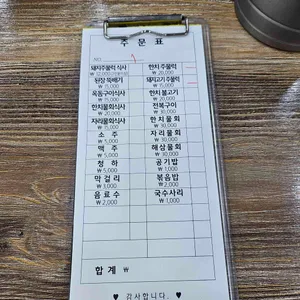 주 문 표
NO.
돼지주물럭 식사
₩ 12,000
한치 주물럭
₩ 20,000
된장 뚝배기
₩ 15,000
돼지고기 주물럭
₩ 15,000
옥돔구이식사
₩ 15,000
한치 불고기
₩ 20,000
한치물회식사
₩ 15,000
전복구이
₩ 30,000
자리물회식사
₩ 15,000
한치물회
₩ 30,000
소 주
₩ 5,000
자리물회
₩ 30,000
맥 주
₩ 5,000
해삼물회
₩ 30,000
청 하
₩ 5,000
공기밥
₩ 1,000
막걸리
₩ 4,000
볶음밥
₩ 2,000
음료수
₩ 2,000
국수사리
₩ 1,000
합 계 ₩
♥ 감사합니다. ♥